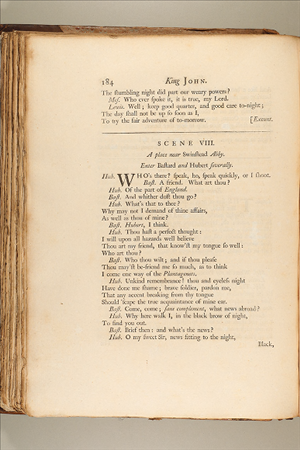 184 King JOHN.
The stumbling night did part our weary powers?
Mes. Who ever spoke it, it is true, my Lord.
Lewis. Well; keep good quarter, and good care to-night;
The day shall not be up so soon as I,
To try the fair adventure of to-morrow. [Exeunt.
SCENE VIII.
A place near Swinstead Abby.
Enter Bastard and Hubert severally.
Hub. WHO's there? speak, ho, speak quickly, or I shoot.
Bast. A friend. What art thou?
Hub. Of the part of England.
Bast. And whither dost thou go?
Hub. What's that to thee?
Why may not I demand of thine affairs,
As well as thou of mine?
Bast. Hubert, I think.
Hub. Thou hast a perfect thought:
I will upon all hazards well believe
Thou art my friend, that know'st my tongue so well:
Who art thou?
Bast. Who thou wilt; and if thou please
Thou may'st be-friend me so much, as to think
I come one way of the Plantagenets.
Hub. Unkind remembrance! thou and eyeless night
Have done me shame; brave soldier, pardon me,
That any accent breaking from thy tongue
Should 'scape the true acquaintance of mine ear.
Bast. Come, come; sans complement, what news abroad?
Hub. Why here walk I, in the black brow of night,
To find you out.
Bast. Brief then: and what's the news?
Hub. O my sweet Sir, news fitting to the night,
Black,